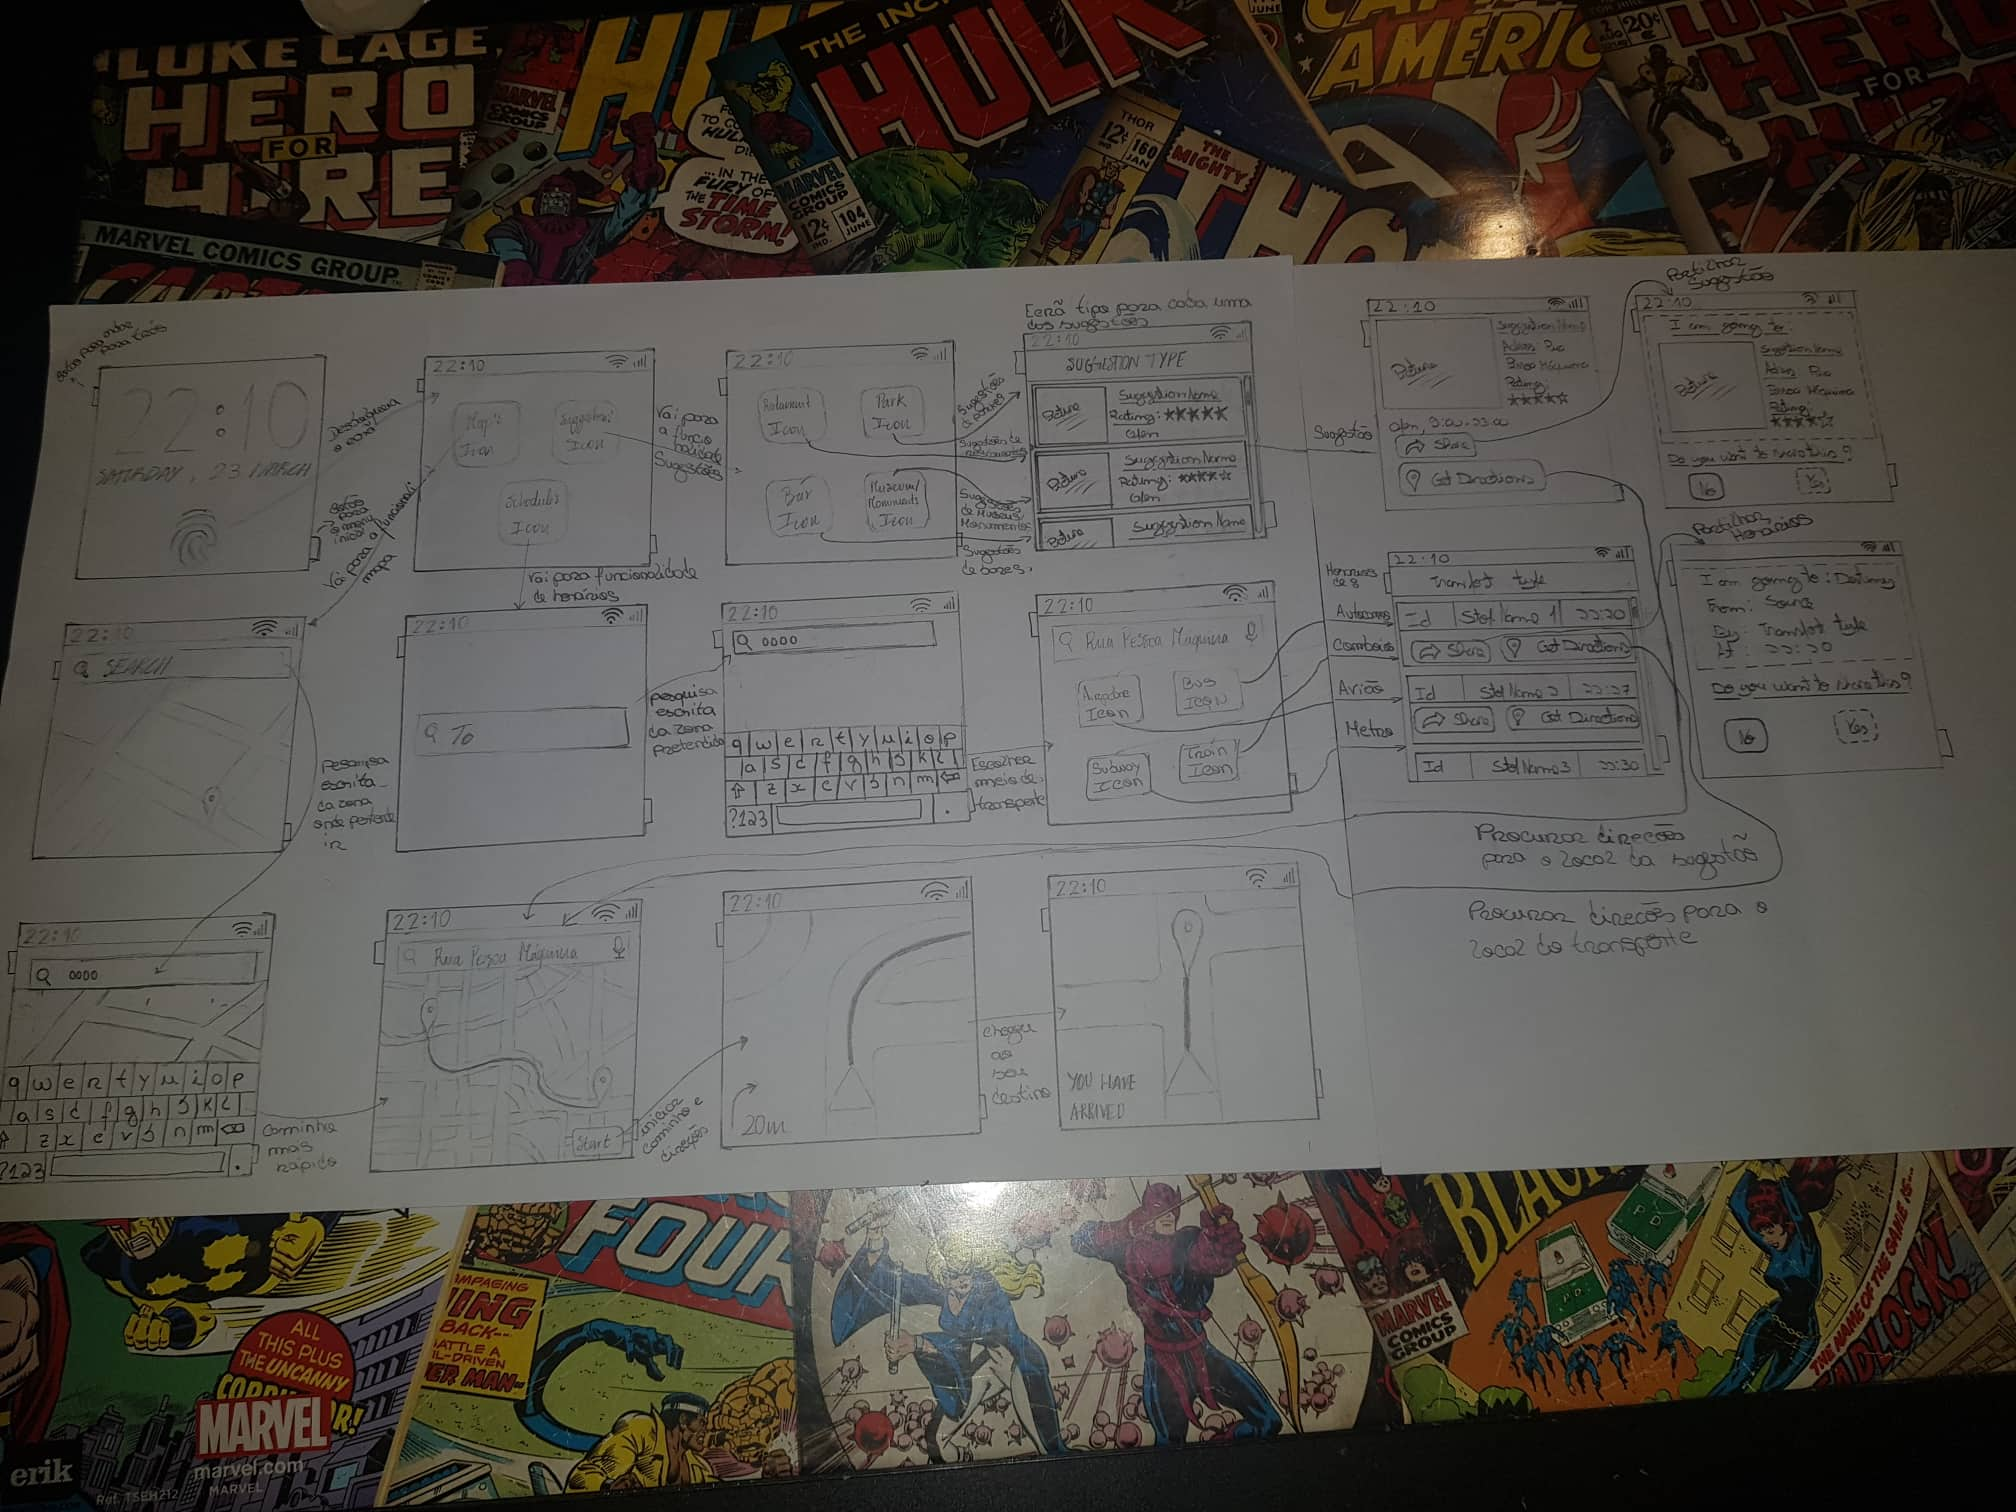 LUKE CAGE,
HERO
FOR
HIRE
MARVEL COMICS GROUP
MARVEL
COMICS
GROUP
THE INC
HULK
MARVEL
COMICS
GROUP
12¢
IND.
104
JUNE
...IN THE
FURY OF
THE TIME
STORM!
THOR
12¢
IND.
160
JAN
THE
MIGHTY
THO
AMERIC
20¢
FOR
Botão para andar
para trás
22:10
SATURDAY, 23 MARCH
Desbloqueia
o ecrã
Botão
para
o menu
inicial
Vai para a funcionali
mapa
22:10
Maps
Icon
Suggestions
Icon
Schedules
Icon
Vai para
a funcio
nalidade
Sugestões
Vai para funcionalidade
de horários
22:10
Restaurant
Icon
Park
Icon
Bar
Icon
Museum/
Monuments
Icon
Sugestões
de parques
Sugestões de
restaurantes
Sugestões
de Museus/
Monumentos
Sugestões
de bares.
Ecrã tipo para cada uma
das sugestões
22:10
SUGGESTION TYPE
Picture
Suggestion Name
Rating: ★★★★★
Open
Picture
Suggestion Name
Rating: ★★★★☆
Open
Picture
Suggestion Name
Sugestão
22:10
Picture
Suggestion Name
Adress: Rua
Pessoa Máquina
Rating:
★★★★☆
Open, 9:00-23:00
Share
Get Directions
Partilhar
Sugestão
22:10
I am going to:
Picture
Suggestion Name
Adress: Rua
Pessoa Máquina
Rating:
★★★★☆
Do you want to share this?
No
Yes
22:10
SEARCH
Pesquisa
escrita
da zona
onde pretende
ir
22:10
To
pesquisa
escrita
da zona
pretendida
22:10
oooo
q w e r t y u i o p
a s d f g h j k l
z x c v b n m
?123 .
Escolher
meio de
transporte
22:10
Rua Pessoa Máquina
Airplane
Icon
Bus
Icon
Subway
Icon
Train
Icon
Horários
de:
Autocarros
Comboios
Avião
Metro
22:10
Transport type
Id Stop Name 1 22:20
Share Get Directions
Id Stop Name 2 22:27
Share Get Directions
Id Stop Name 3 22:30
Partilhar
Horários
I am going to: Destiny
From: Source
By: Transport type
At: 22:20
Do you want to share this?
No
Yes
Procurar direcões
para o local da sugestão
Procurar direcões para o
local do transporte
22:10
oooo
q w e r t y u i o p
a s d f g h j k l
z x c v b n m
?123 .
Caminho
mais
rápido
22:10
Rua Pessoa Máquina
Start
iniciar
caminho e
direções
22:10
20m
chegou
ao
seu
destino
22:10
YOU HAVE
ARRIVED
ALL
THIS PLUS
THE UNCANNY
MARVEL
marvel.com
MARVEL
erik
Ref. TSEH212
FOUR
MARVEL
COMICS
GROUP
BLAC
THE NAME OF THE GAME IS...